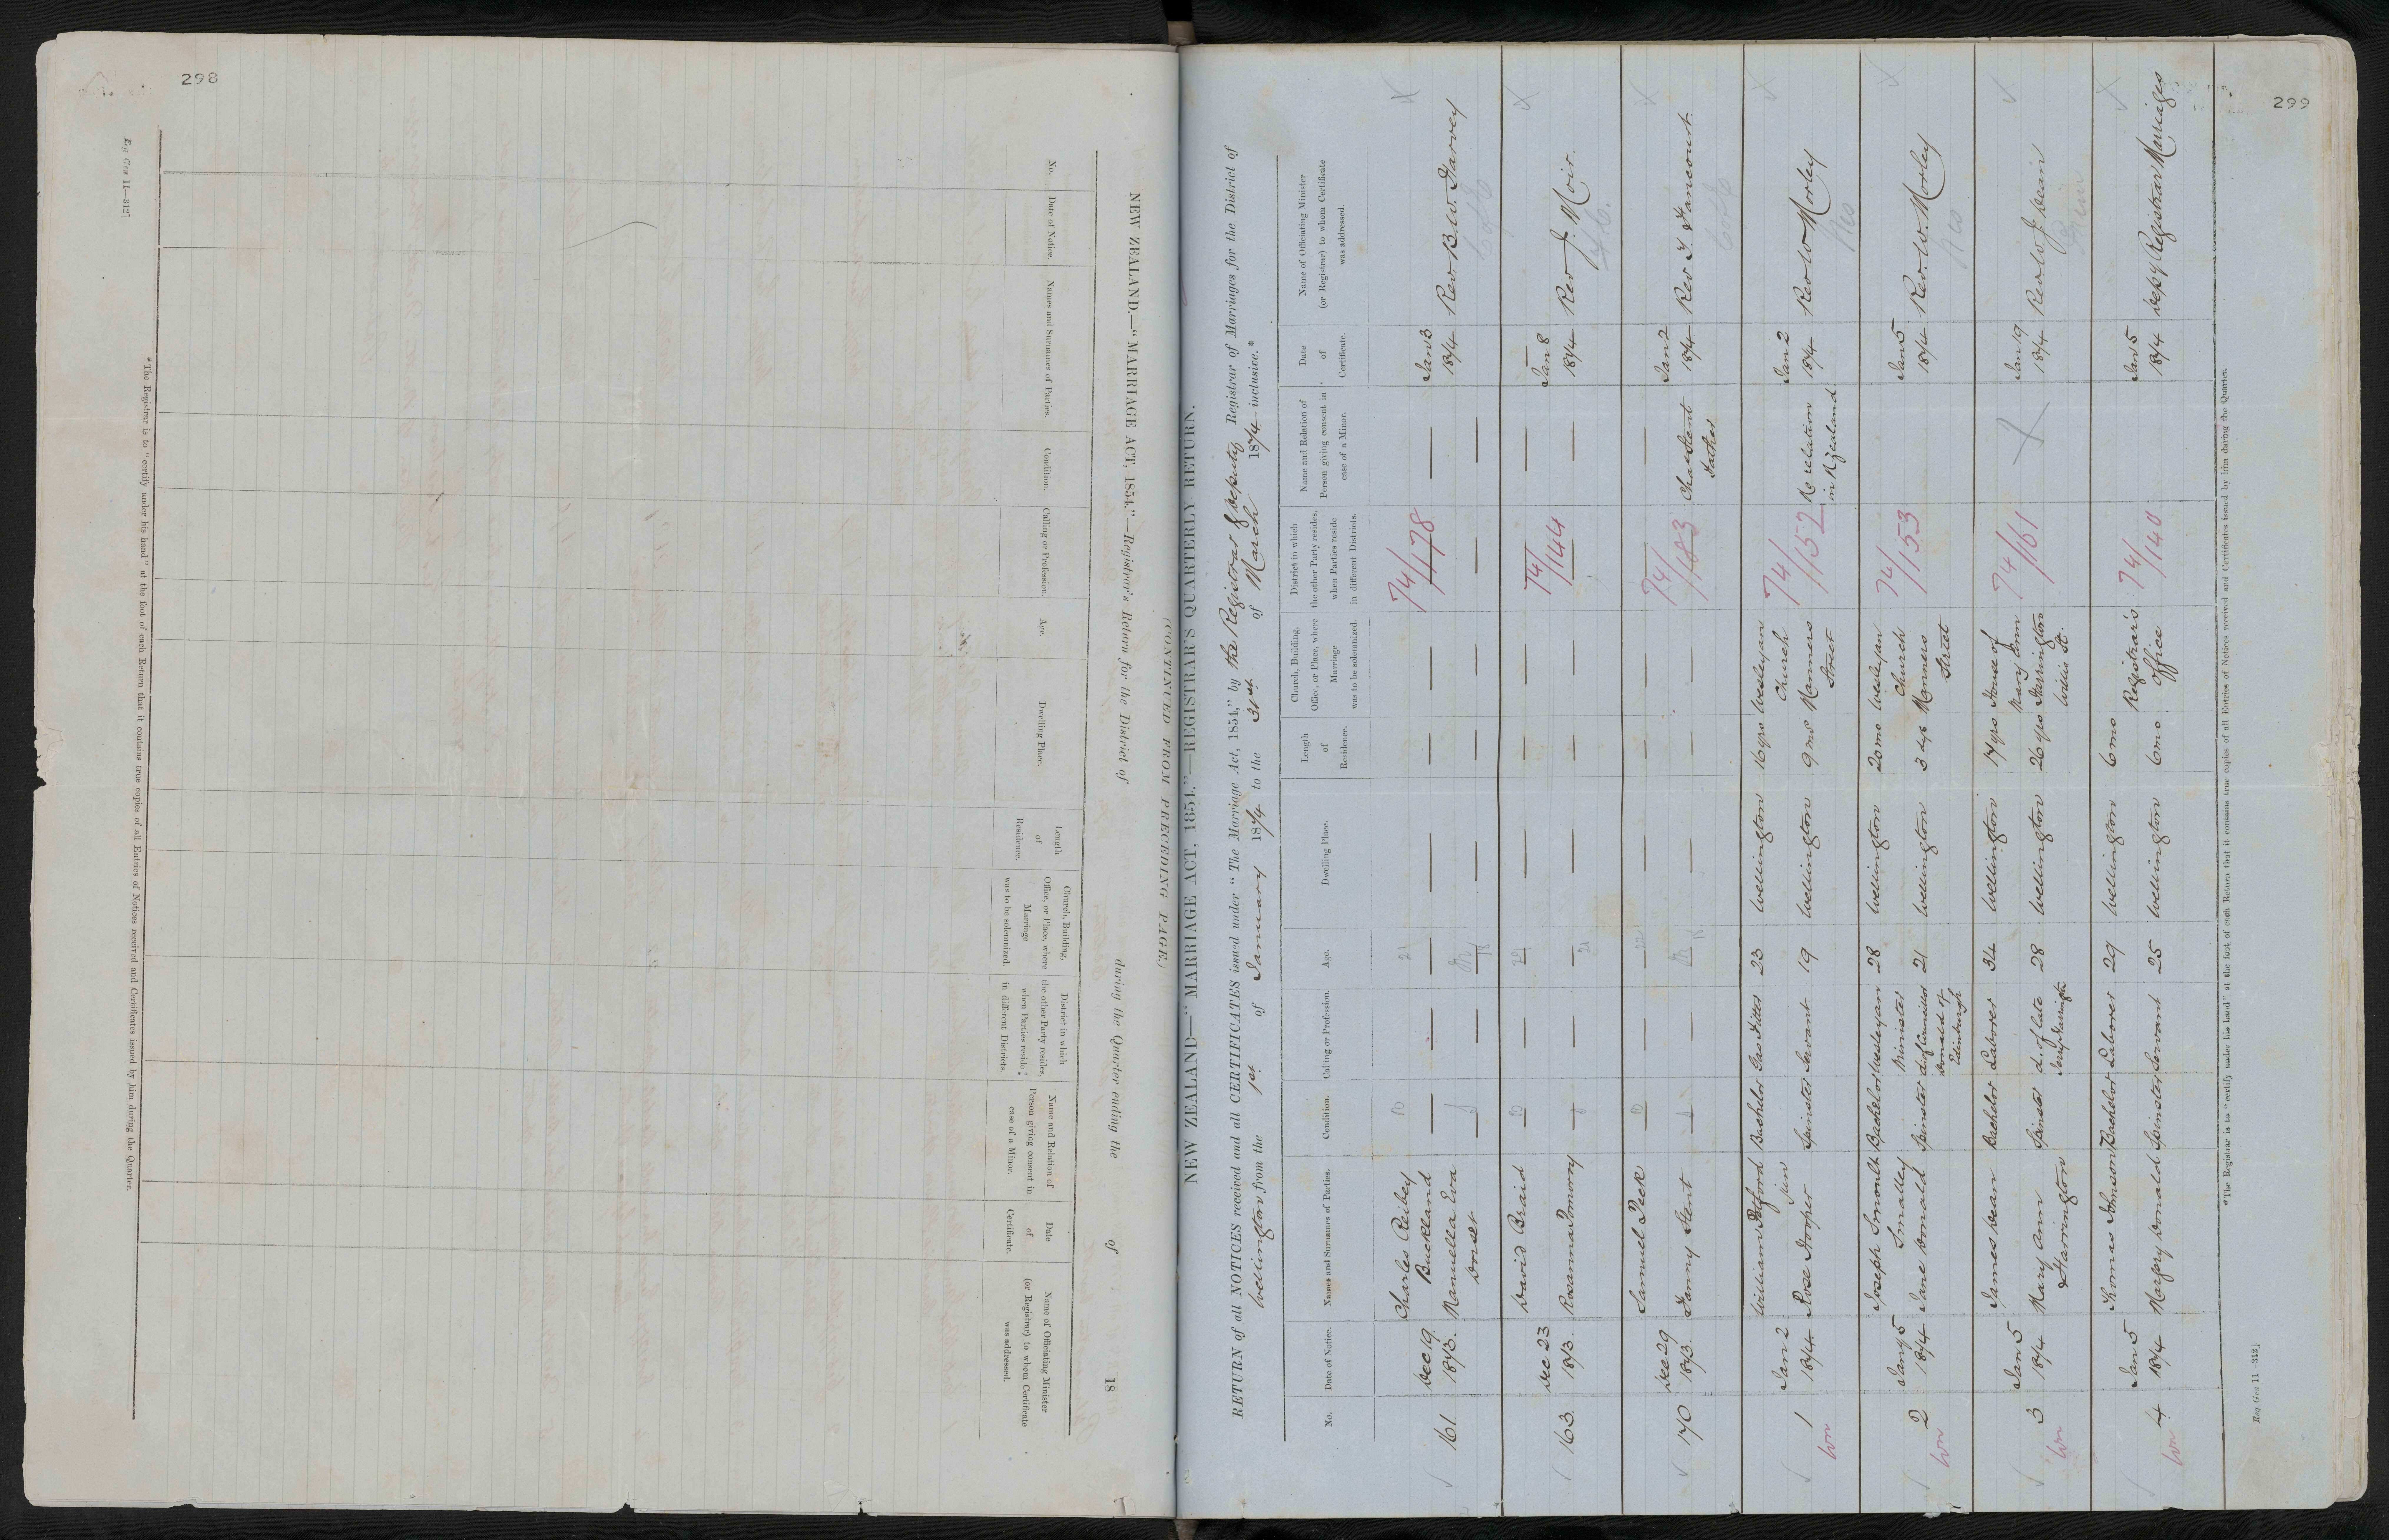 298
Reg Gen 11—312]
NEW ZEALAND.—"MARRIAGE ACT, 1854."—Registrar's Return for the District of during the Quarter ending the of 18
(CONTINUED FROM PRECEDING PAGE.)
No.
Date of Notice.
Names and Surnames of Parties.
Condition.
Calling or Profession.
Age.
Dwelling Place.
Length
of
Residence.
Church, Building,
Office, or Place, where
Marriage
was to be solemnized.
District in which
the other Party resides,
when Parties reside
in different Districts.
Name and Relation of
Person giving consent in
case of a Minor.
Date
of
Certificate.
Name of Officiating Minister
(or Registrar) to whom Certificate
was addressed.
*The Registrar is to "certify under his hand" at the foot of each Return that it contains true copies of all Entries of Notices received and Certificates issued by him during the Quarter.
299
NEW ZEALAND—"MARRIAGE ACT, 1854."—REGISTRAR'S QUARTERLY RETURN.
RETURN of all NOTICES received and all CERTIFICATES issued under "The Marriage Act, 1854," by the Registrar & Deputy Registrar of Marriages for the District of
Wellington from the 1st of January 1874 to the 31st of March 1874 inclusive.*
No.
Date of Notice.
Names and Surnames of Parties.
Condition.
Calling or Profession.
Age.
Dwelling Place.
Length
of
Residence.
Church, Building,
Office, or Place, where
Marriage
was to be solemnized.
District in which
the other Party resides,
when Parties reside
in different Districts.
Name and Relation of
Person giving consent in
case of a Minor.
Date
of
Certificate.
Name of Officiating Minister
(or Registrar) to whom Certificate
was addressed.
161
Dec 19
1873.
Charles Reibey
Buckland
Manuella Eva
Dorset
74/178
Jan 3
1874
Rev B. W. Harvey
163
Dec 23
1873.
David Braid
Rosanna Pomoroy
74/144
Jan 8
1874
Rev J. Moir.
170
Dec 29
1873.
Samuel Peek
Fanny Stent
74/183
Chas Stent
Father
Jan 2
1874
Rev T. Fancourt
1
Jan 2
1874
William Pilford
Jun
Bachelor
Gas Fitter
23
Wellington
16 yrs
Wesleyan
Church
Manners
Street
Rose Hooper
Spinster
Servant
19
Wellington
9 ms
74/152
No relation
in N Zealand
Jan 2
1874
Rev W Morley
2
Jany 5
1874
Joseph Smoult
Smalley
Bachelor
Wesleyan
Minister
28
Wellington
20 mo
Wesleyan
Church
Manners
Street
Jane Donald
Spinster
d. of Councillor
Donald of
Edinburgh
21
Wellington
3 dys
74/153
Jan 5
1874
Rev. W. Morley
3
Jan 5
1874
James Dean
Bachelor
Laborer
34
Wellington
17 yrs
House of
Mary Ann
Harrington
Willis St.
Mary Ann
Harrington
Spinster
d. of late
28
Wellington
26 yrs
74/161
Jan 19
1874
Rev W. J. Dean
4
Jan 5
1874
Thomas Johnson
Bachelor
Laborer
29
Wellington
6 mo
Registrar's
Office
Margry Donald
Spinster
Servant
25
Wellington
6 mo
74/140
Jan 5
1874
Depy Registrar Marriages
*The Registrar is to "certify under his hand" at the foot of each Return that it contains true copies of all Entries of Notices received and Certificates issued by him during the Quarter.
Reg Gen 11—312]